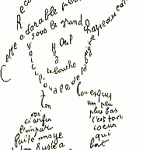 adorable
sous le grand chapeau
Cette
Oeil
la bouche
ovale de ta
Ton
cou exquis
voi
ci enfin
l'impar
faite image
de ton buste
un peu
plus bas
c'est ton
coeur
qui
bat